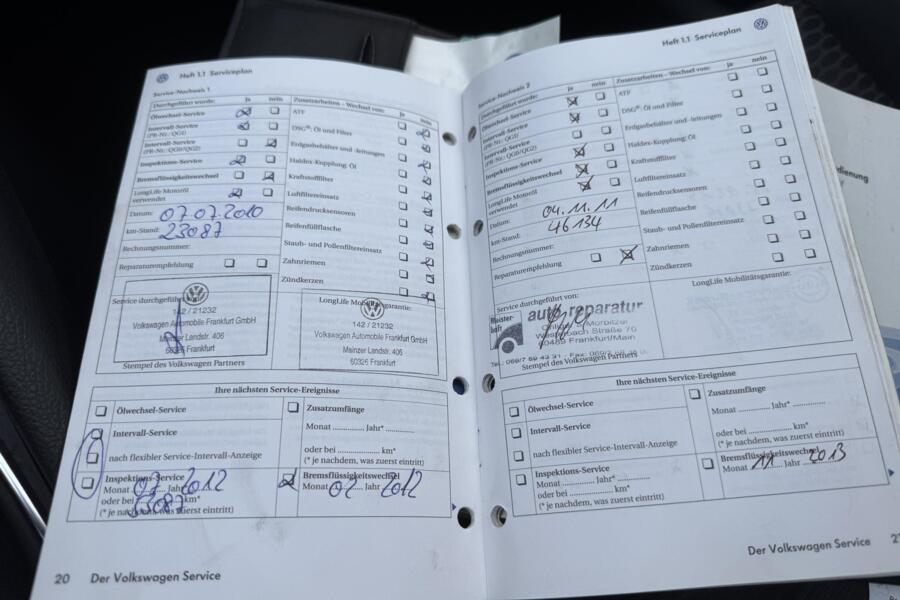 Heft 1.1 Serviceplan
Service-Nachweis 1
Durchgeführt wurde: ja nein
Ölwechsel-Service
Intervall-Service
(PR-Nr.: QG1)
Intervall-Service
(PR-Nr.: QG0/QG2)
Inspektions-Service
Bremsflüssigkeitswechsel
LongLife Motoröl
verwendet
Datum: 07.07.2010
km-Stand: 23087
Rechnungsnummer:
Reparaturempfehlung
Zusatzarbeiten - Wechsel von: ja nein
ATF
DSG®: Öl und Filter
Erdgasbehälter und -leitungen
Haldex-Kupplung: Öl
Kraftstofffilter
Luftfiltereinsatz
Reifendrucksensoren
Reifenfüllflasche
Staub- und Pollenfiltereinsatz
Zahnriemen
Zündkerzen
Service durchgeführt von:
142 / 21232
Volkswagen Automobile Frankfurt GmbH
Mainzer Landstr. 406
60326 Frankfurt
Stempel des Volkswagen Partners
LongLife Mobilitätsgarantie:
142 / 21232
Volkswagen Automobile Frankfurt GmbH
Mainzer Landstr. 406
60326 Frankfurt
Ihre nächsten Service-Ereignisse
Ölwechsel-Service
Intervall-Service
nach flexibler Service-Intervall-Anzeige
Inspektions-Service
Monat 07 Jahr* 2012
oder bei 53087 km*
(* je nachdem, was zuerst eintritt)
Zusatzumfänge
Monat .............. Jahr* ..................
oder bei .................. km*
(* je nachdem, was zuerst eintritt)
Bremsflüssigkeitswechsel
Monat 02 Jahr 2012
20 Der Volkswagen Service
Heft 1.1 Serviceplan
Service-Nachweis 2
Durchgeführt wurde: ja nein
Ölwechsel-Service
Intervall-Service
(PR-Nr.: QG1)
Intervall-Service
(PR-Nr.: QG0/QG2)
Inspektions-Service
Bremsflüssigkeitswechsel
LongLife Motoröl
verwendet
Datum: 04.11.11
km-Stand: 46134
Rechnungsnummer:
Reparaturempfehlung
Zusatzarbeiten - Wechsel von: ja nein
ATF
DSG®: Öl und Filter
Erdgasbehälter und -leitungen
Haldex-Kupplung: Öl
Kraftstofffilter
Luftfiltereinsatz
Reifendrucksensoren
Reifenfüllflasche
Staub- und Pollenfiltereinsatz
Zahnriemen
Zündkerzen
Service durchgeführt von:
Meister-
haft
auto reparatur
60489 Frankfurt/Main
Stempel des Volkswagen Partners
LongLife Mobilitätsgarantie:
Ihre nächsten Service-Ereignisse
Ölwechsel-Service
Intervall-Service
nach flexibler Service-Intervall-Anzeige
Inspektions-Service
Monat .............. Jahr* ..................
oder bei .................. km*
(* je nachdem, was zuerst eintritt)
Zusatzumfänge
Monat .............. Jahr* ..................
oder bei .................. km*
(* je nachdem, was zuerst eintritt)
Bremsflüssigkeitswechsel
Monat 11 Jahr 2013
Der Volkswagen Service